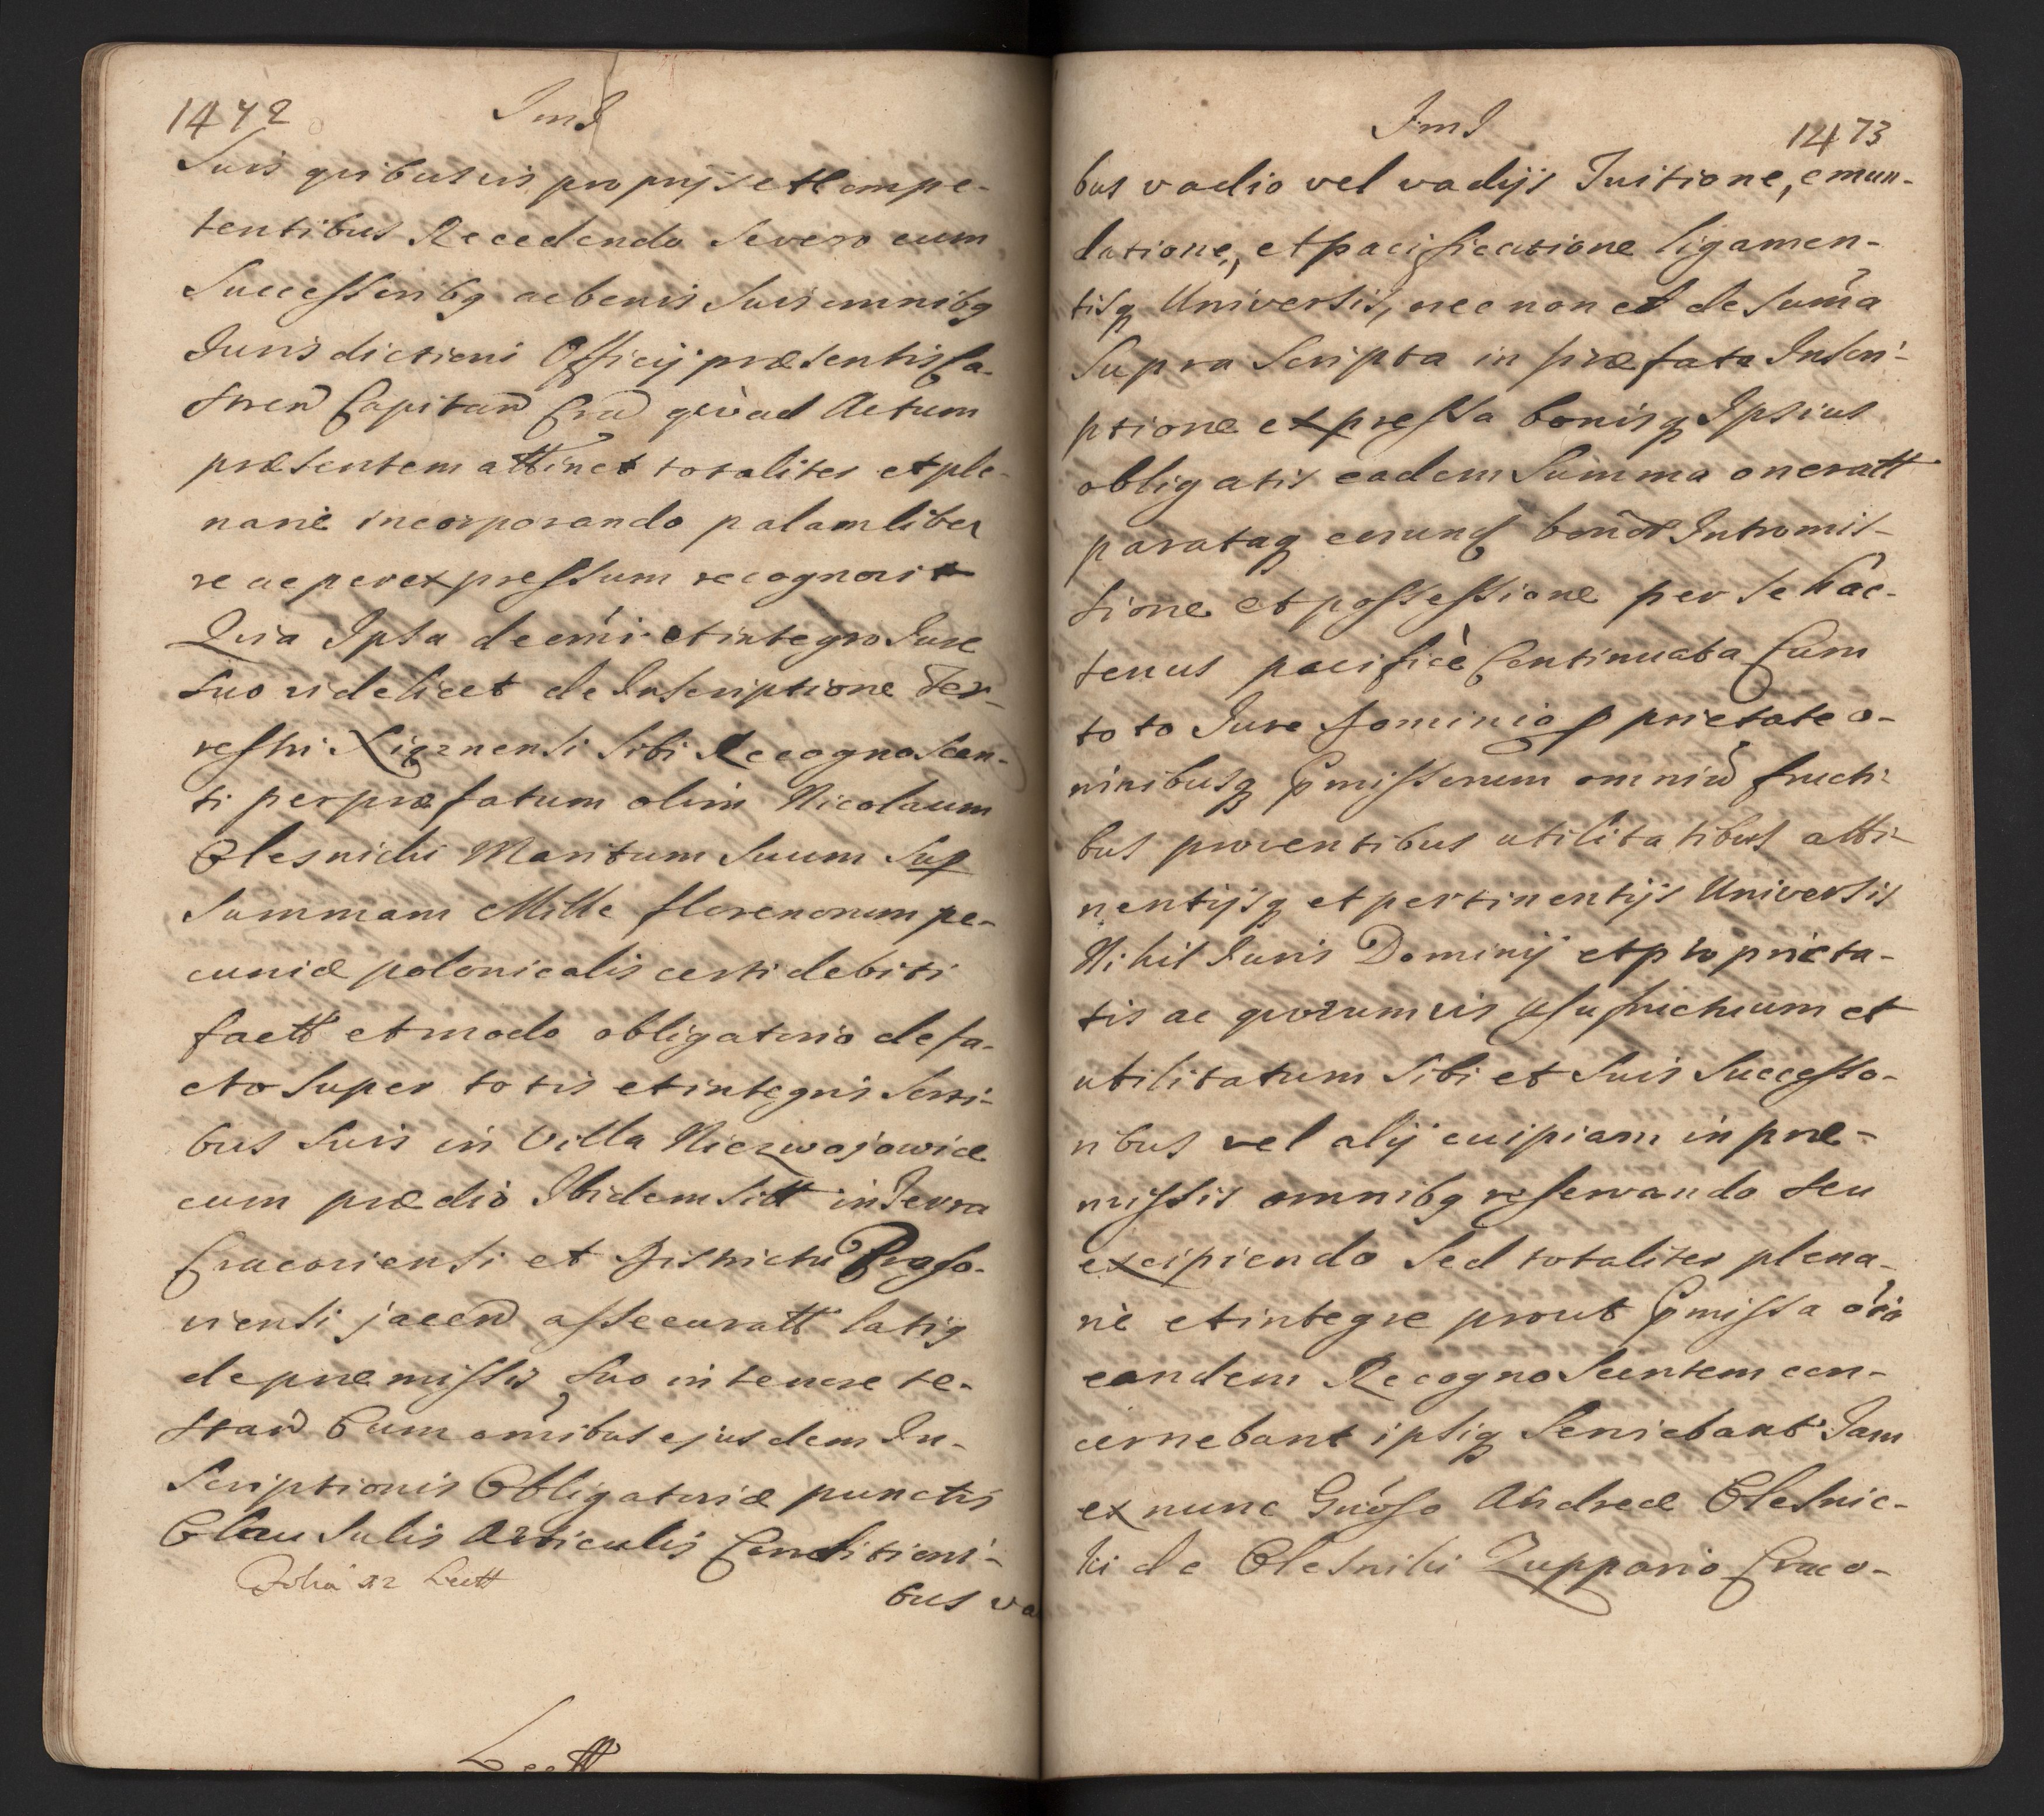 1472
ImJ
Suis quibusvis proprijs et compe-
tentibus Recedendo Se vero cum
Successoribq ac bonis Suis omnibq
Jurisdictioni Officij præsentis Ca-
stren Capitan Cra quòad Actum
præsentem attinet totaliter et ple-
narie incorporando palam liber
re ac per expressum recognovit
Quia Ipsa de omi et integro Jure
suo videlicet de Inscriptione Ter-
restri Xiąznensi Sibi Recognoscen-
ti per præfatum olim Nicolaum
Olesnicki Maritum Suum Sup
Summam Mille florenorum pe-
cuniæ polonicalis certi debiti
factt et modo obligatorio de fa-
cto Super totis et integris Sorti-
bus Suis in Villa Niezwojowice
cum prædio Ibidem Sitt in Terra
Cracoviensi et Districtu Proszo-
viensi jacen assecuratt latiq
de præmissis suo in tenore te-
stan Cum omibus ejusdem In-
Scriptionis Obligatoriæ punctis
Clausulis Articulis Conditioni-
bus va
1473
ImJ
bus vadio vel vadijs Tuitione, emun-
datione, et pacificatione ligamen-
tisq Universis, nec non et de Suma
Supra Scripta in præfata Inscri-
ptione expressa bonisq Ipsius
obligatis eadem Summa oneratt
parataq eorund bonor Intromis-
sione et possessione per Se hac-
tenus pacificè Continuata Cum
toto Jure Dominio pprietate o-
mnibusq Pmissorum omniu fructi-
bus proventibus utilitatibus atti-
nentijsq et pertinentijs Universis
Nihil Juris Dominij et proprieta-
tis ac quorumvis usufructuum et
utilitatum Sibi et Suis Successo-
ribus vel alij cuipiam in præ-
missis omnibq reservando seu
excipiendo Sed totaliter plena-
riè et integre prout Pmissa oia
eandem Recognoscentem con-
cernebant ipsiq Serviebant Jam
ex nunc Gnoso Andreæ Olesnic-
ki de Olesniki Zuppario Craco-